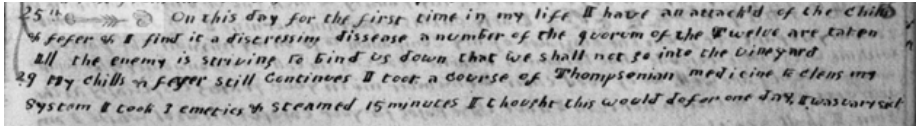 25th On this day for the first time in my life I have an attack'd of the Chills
& fefer & I find it a distressing dissease a number of the quorum of the Twelve are taken
ill the enemy is striving to bind us down that we shall not go into the vineyard
29 My Chills & fever still Continues I took a Course of Thompsonian medicine to clens my
System I took 3 emetics & steamed 15 minutes I thought this would do for one day, I was vary sick